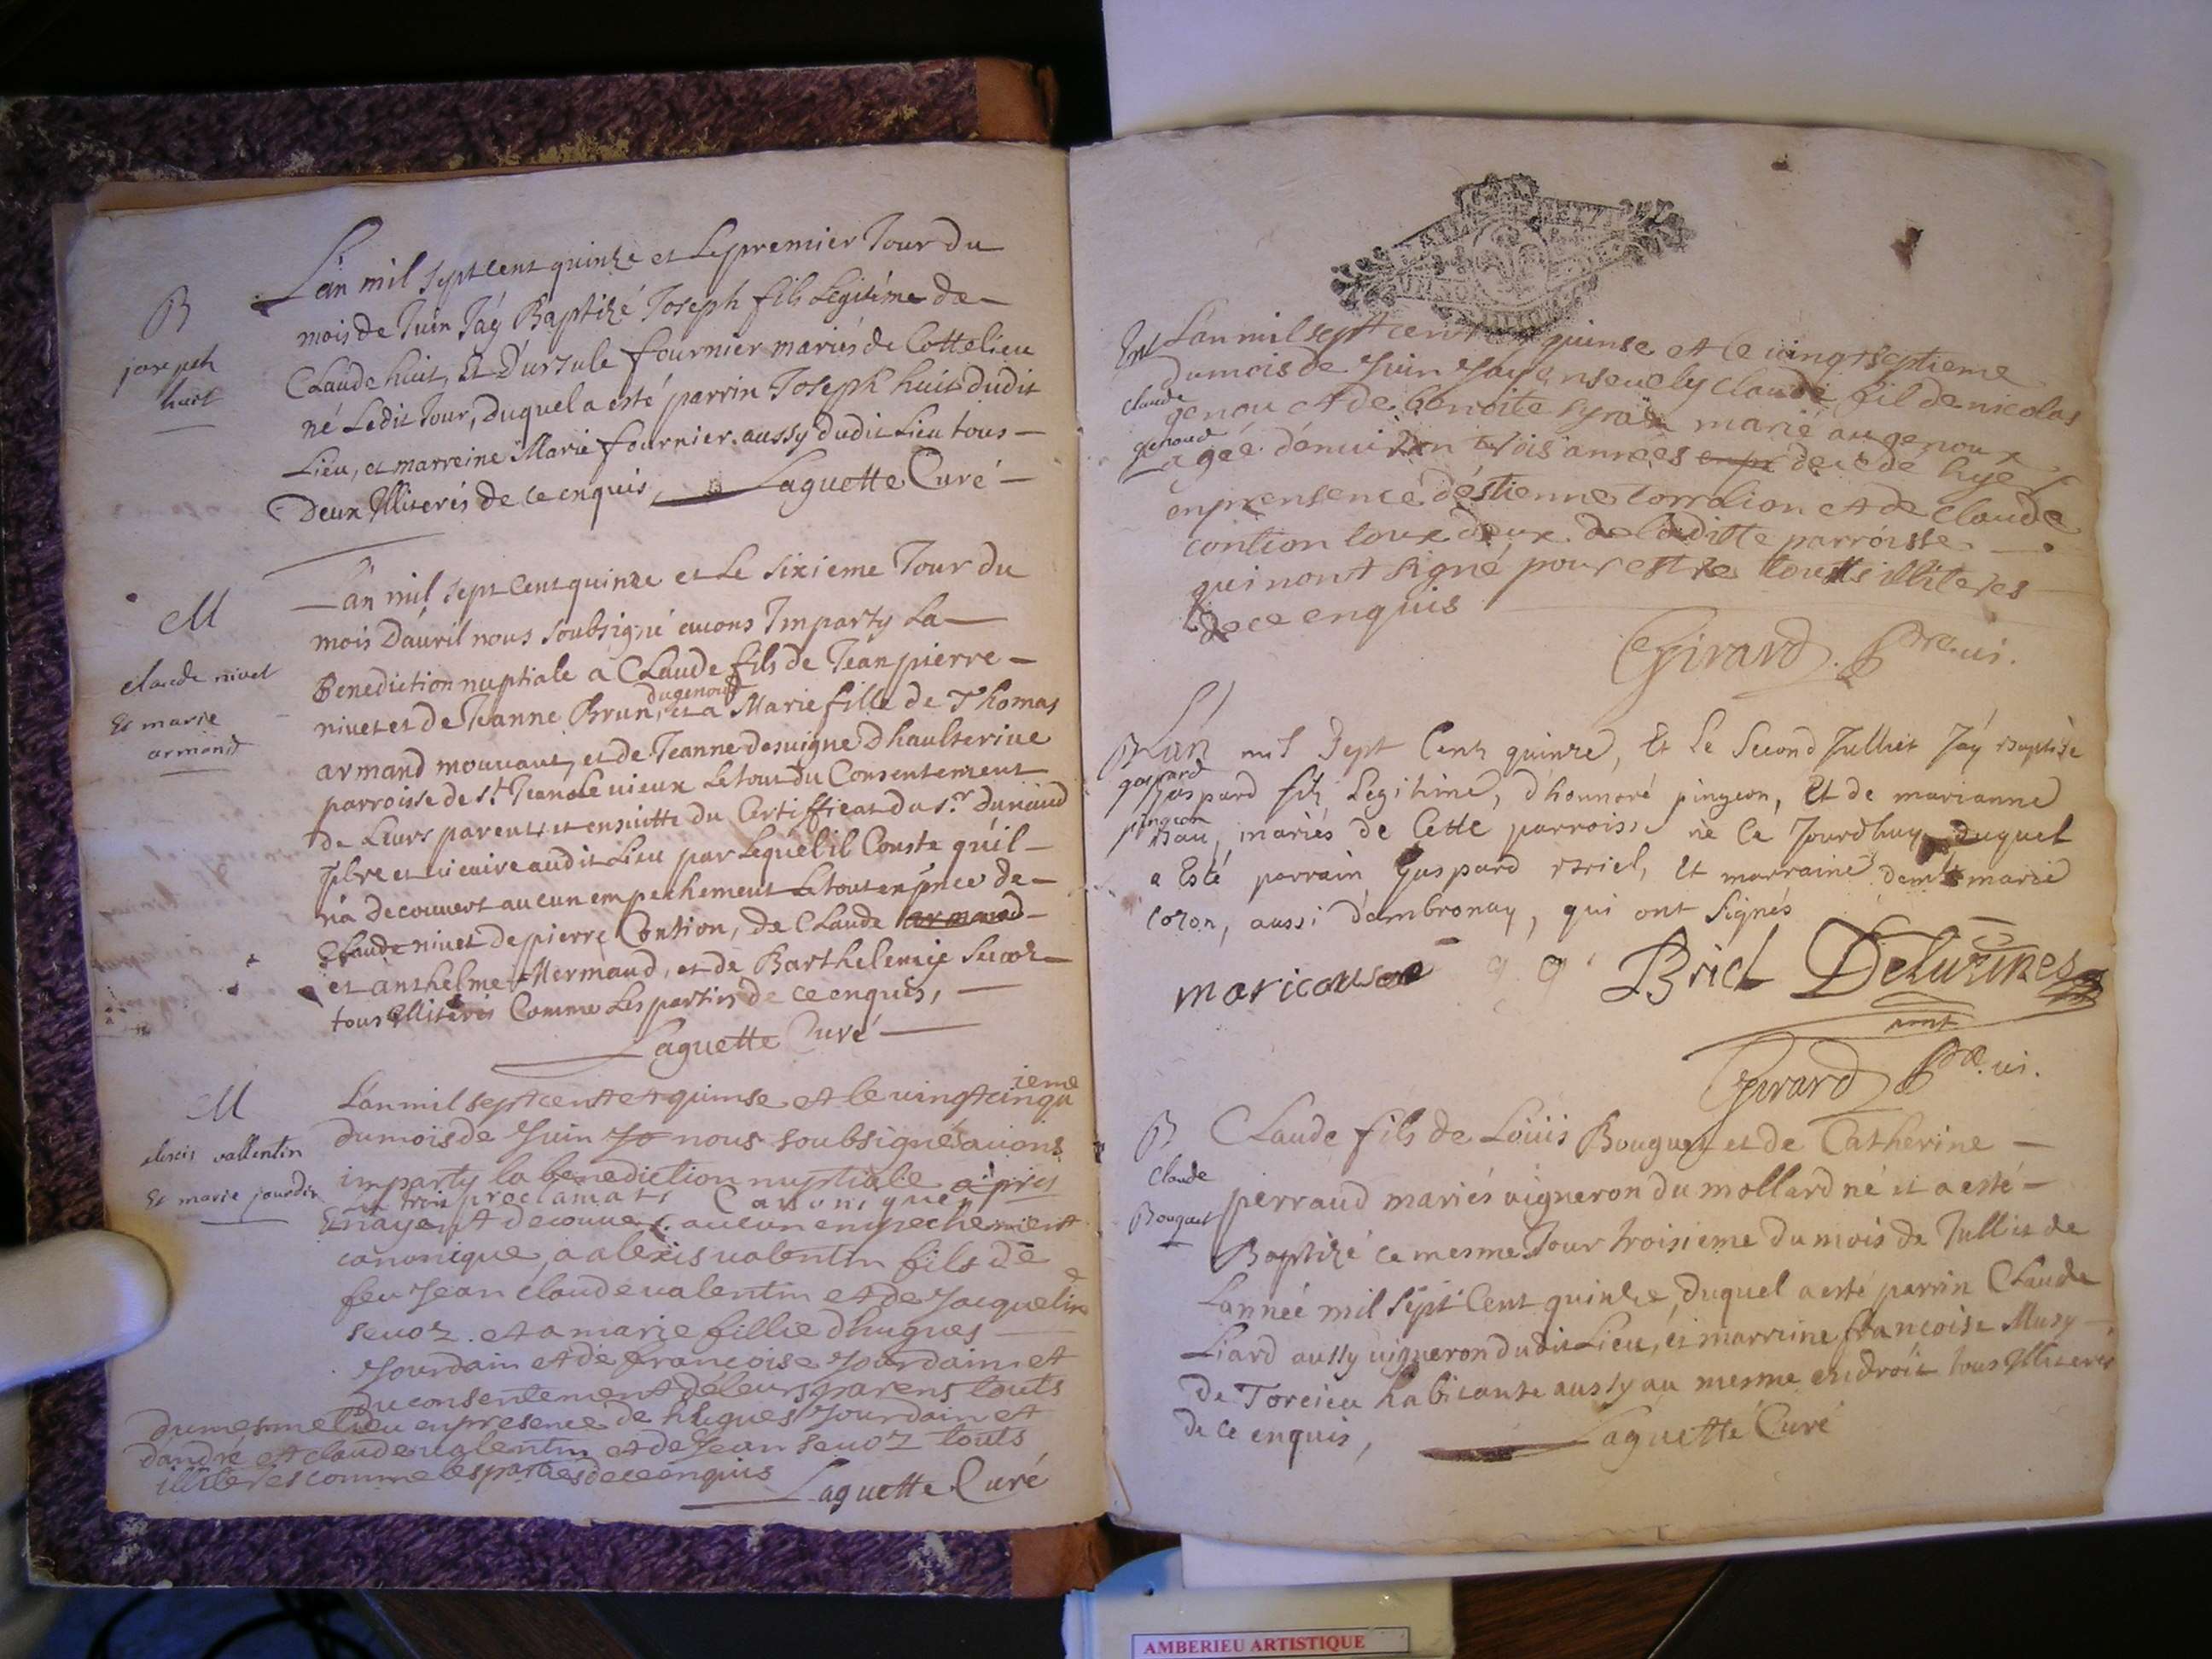 L'an mil sept cent quinze et Le premier Jour du
B
mois de Juin J'ay Baptizé Joseph fils Legitime de
joseph
Claude huit, et D'ursule fournier mariés de Cottelieu
huit
né Ledit Jour, duquel a esté parrin Joseph huit dudit
Lieu, et marreine Marie fournier aussy dudit Lieu tous
Deux Illiterés de ce enquis, Laguette Curé
L'an mil sept Cent quinze et Le sixieme Jour du
M
mois D'auril nous soubsigné auons Imparty La
claude nivet
Benediction nuptiale a Claude fils de Jean pierre
dugenoud
Et marie
niuet et de Jeanne Brun, et a Marie fille de Thomas
armand
armand mouuant, et de Jeanne desuigne d'haulteriue
parroisse de s.t Jean Le uieux Le tout du Consentement
de Leurs parents et ensuitte du Certifficat du s.r duriaud
ptre et uicaire audit Lieu par Lequel il Conste qu'il
n'a decouuert aucun empechement Le tout en p'nce de
Claude niuet de pierre Contion, de Claude armand
et anthelme Mermand, et de Barthelemie Seuoz
tous Illiterés Comme Les parties de ce enquis,
Laguette Curé
M
L'an mil sept cent et quinse et le uingt cinqu
ieme
du mois de Juin Jo nous soubsignés auions
alexis vallentin
imparty la benediction nuptiale apres
Et marie jourdin
trois proclamats Canonique
N'ayent decouuert aucun empechement
canonique, a alexis ualentin fils de
feu Jean claude ualentin et de Jacqueline
seuoz. et a marie fillie d'hugues
Jourdain et de françoise Jourdain et
du consentement de leurs parens touts
du mesme lieu en presence de hugues Jourdain et
d'andre et claude ualentin et de Jean seuoz touts
illiterés comme les parties de ce enquis
Laguette Curé
L'an mil sept cent quinse et le uingt septieme
Ent
du mois de Juin J'ay enseuely claude fil de nicolas
claude
genou et de benoite syrau marié au genoux
genoud
agée d'enuiron trois années decede hyer
en prensence d'estienne torralion et de claude
contion toux deux de laditte parroisse
qui n'ont signé pour estre touts illiteres
de ce enquis
Girard. Ptre. ui.
B
L'an mil Sept Cent quinze, Et le Second Julliet J'ay Baptisé
gaspard
Gaspard fils Legitime, d'honnoré pingeon, Et de marianne
pingeon
Bau, mariés de Cette parroisse né Ce Jourdhuy duquel
a Esté parrain Gaspard Briel, Et marraine demle marie
cozon, aussi d'ambronay, qui ont Signés
marie couson g g Briel Deluzines
Girard Ptre. ui.
B
Claude fils de Loüis Bouguet et de Catherine
Claude
perraud mariés uigneron du mollard né et a esté
Bouguet
Baptizé ce mesme Jour troisieme du mois de Julliet de
L'année mil Sept Cent quinze, duquel a esté parrin Claude
Liard aussy uigneron dudit Lieu, et marreine françoise Musy
de Torcieu habitante aussy au mesme endroit tous Illiterés
de ce enquis, Laguette Curé
AMBERIEU ARTISTIQUE